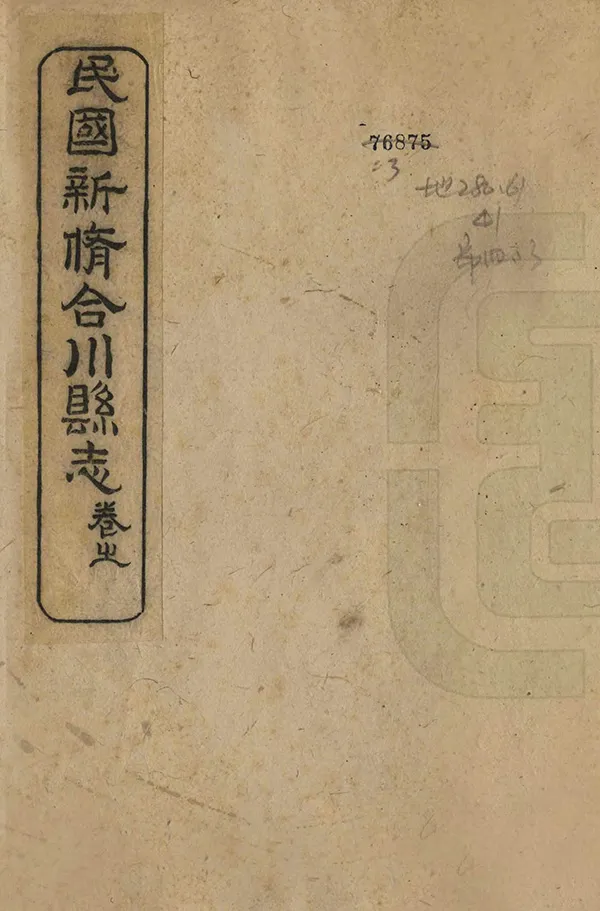 民國新脩合川縣志 卷之
76875
:3
地280.61